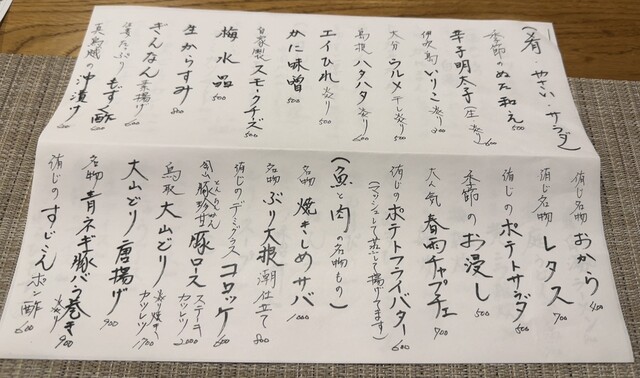 （肴・やさい・サラダ）
季節のぬた和え 500
辛子明太子（生 炙り） 600
伊吹島 いりこ 炙り 300
大分 ウルメ干し 炙り 500
鳥取 ハタハタ 炙り 600
エイひれ 炙り 500
かに味噌 500
自家製 スモークチーズ 500
梅水晶 500
生からすみ 800
ぎんなん 素揚げ
たっぷり もずく酢 600
真鳥賊の沖漬け 600
侑じ名物 おから 400
侑じ名物 レタス 700
侑じのポテトサラダ 500
季節のお浸し 500
大人気 春雨チャプチェ 700
侑じのポテトフライバター 600
（マッシュして蒸して揚げてます）
（魚と肉の名物もの）
名物 焼きしめサバ 1000
名物 ぶり大根 潮仕立て 800
侑じのデミグラスコロッケ 600
豚ロース ステーキ カツレツ 2000
鳥取 大山どり 炭焼き カツレツ 700
大山どり唐揚げ 900
名物 青ネギ豚バラ巻き 炭炙り 900
侑じのすじこんポン酢 600